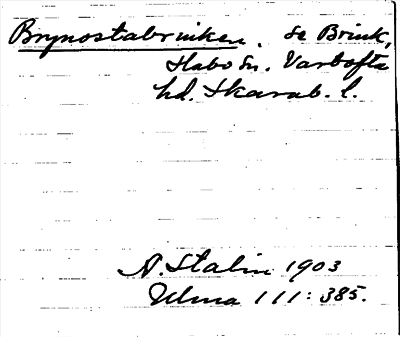 Brynostabrinken. se Brink,
Habo sn. Vartofta
hd. Skarab. l.
A. Stalin 1903
Ulma 111: 385.